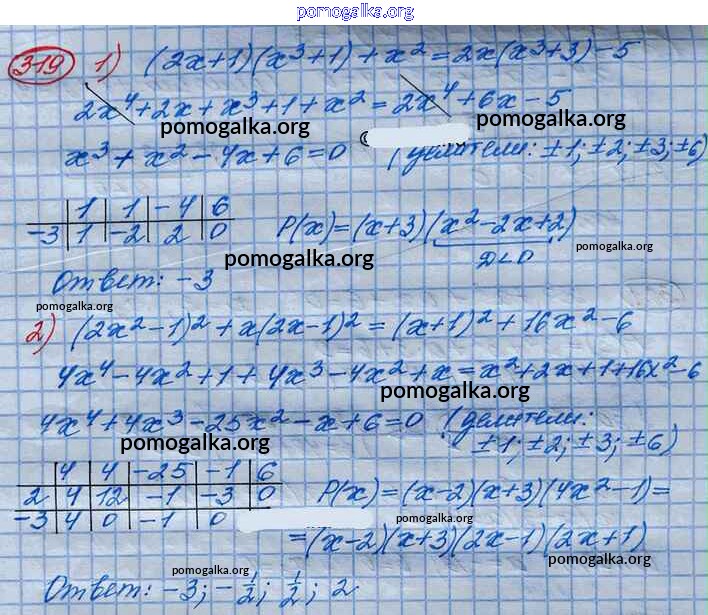 pomogalka.org
319 1) (2x+1)(x³+1)+x²=2x(x³+3)-5
2x⁴+2x+x³+1+x²=2x⁴+6x-5
pomogalka.org
pomogalka.org
x³+x²-4x+6=0 (делители: ±1; ±2; ±3; ±6)
1 | 1 | -4 | 6
-3 | 1 | -2 | 2 | 0
P(x)=(x+3)(x²-2x+2)
D<0
pomogalka.org
pomogalka.org
Ответ: -3
pomogalka.org
2) (2x²-1)²+x(2x-1)²=(x+1)²+16x²-6
4x⁴-4x²+1+4x³-4x²+x=x²+2x+1+16x²-6
pomogalka.org
4x⁴+4x³-25x²-x+6=0 (делители:
±1; ±2; ±3; ±6)
pomogalka.org
4 | 4 | -25 | -1 | 6
2 | 4 | 12 | -1 | -3 | 0
-3 | 4 | 0 | -1 | 0
P(x)=(x-2)(x+3)(4x²-1)=
pomogalka.org
=(x-2)(x+3)(2x-1)(2x+1)
pomogalka.org
pomogalka.org
Ответ: -3; -1/2; 1/2; 2
pomogalka.org